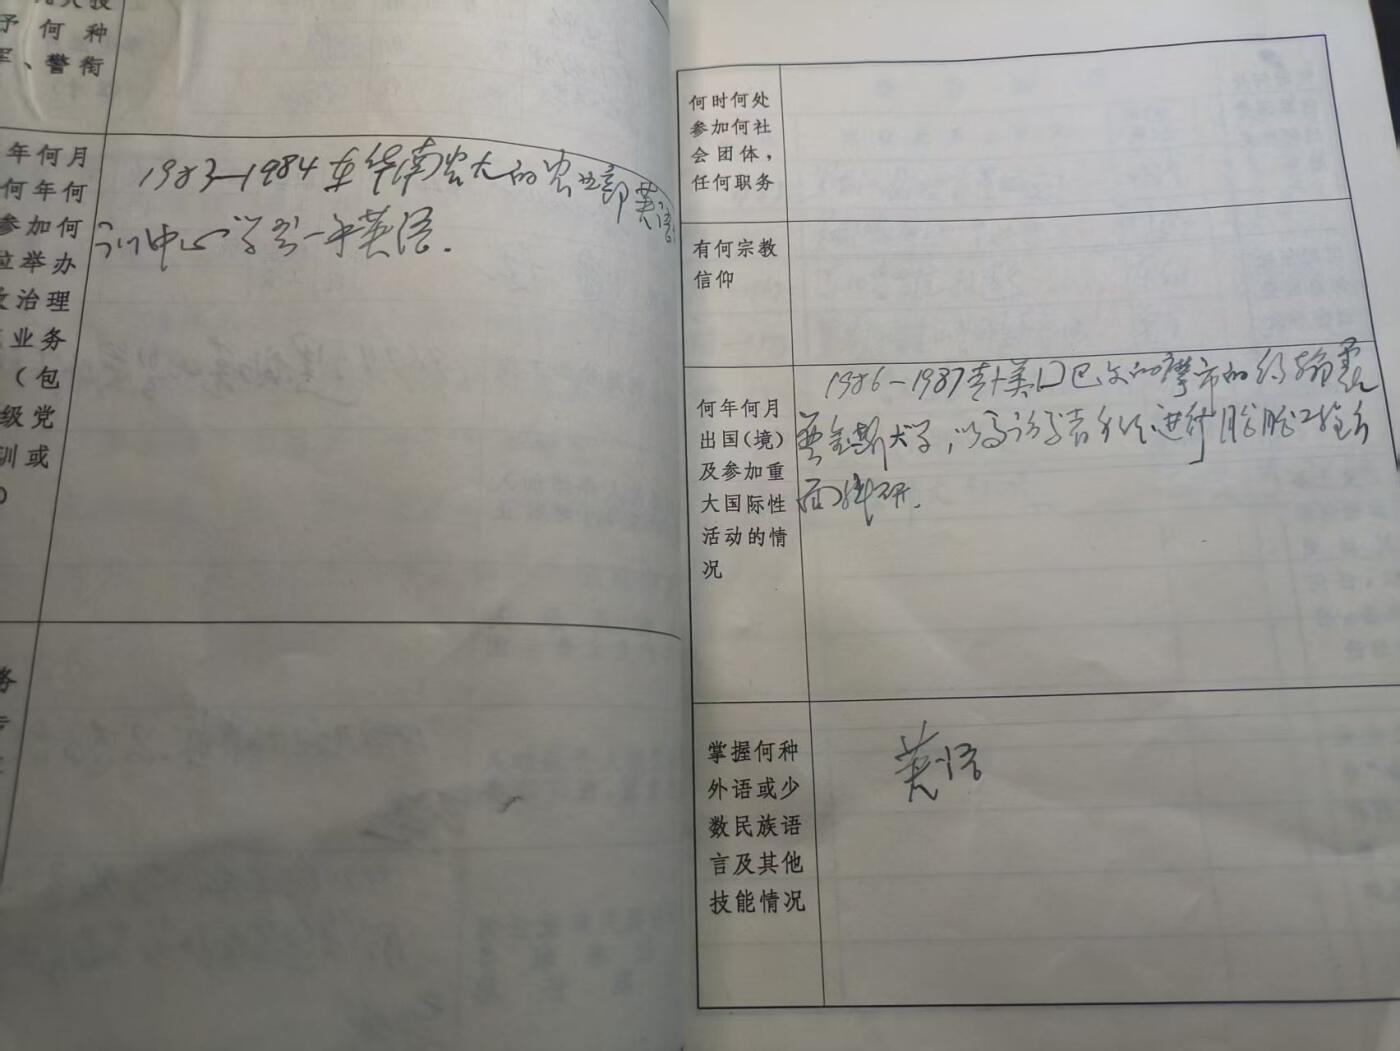 予何种
军、警衔
年何月
何年何
参加何
位举办
政治理
业务
（包
级党
训或
1983—1984在华南农大的农业部英语
训中心学习一年英语.
务
何时何处
参加何社
会团体，
任何职务
有何宗教
信仰
何年何月
出国(境)
及参加重
大国际性
活动的情
况
1986—1987赴美国巴尔的摩市的约翰霍
金斯大学，以高访学者身份进行胚胎工程方
面科研.
掌握何种
外语或少
数民族语
言及其他
技能情况
英语